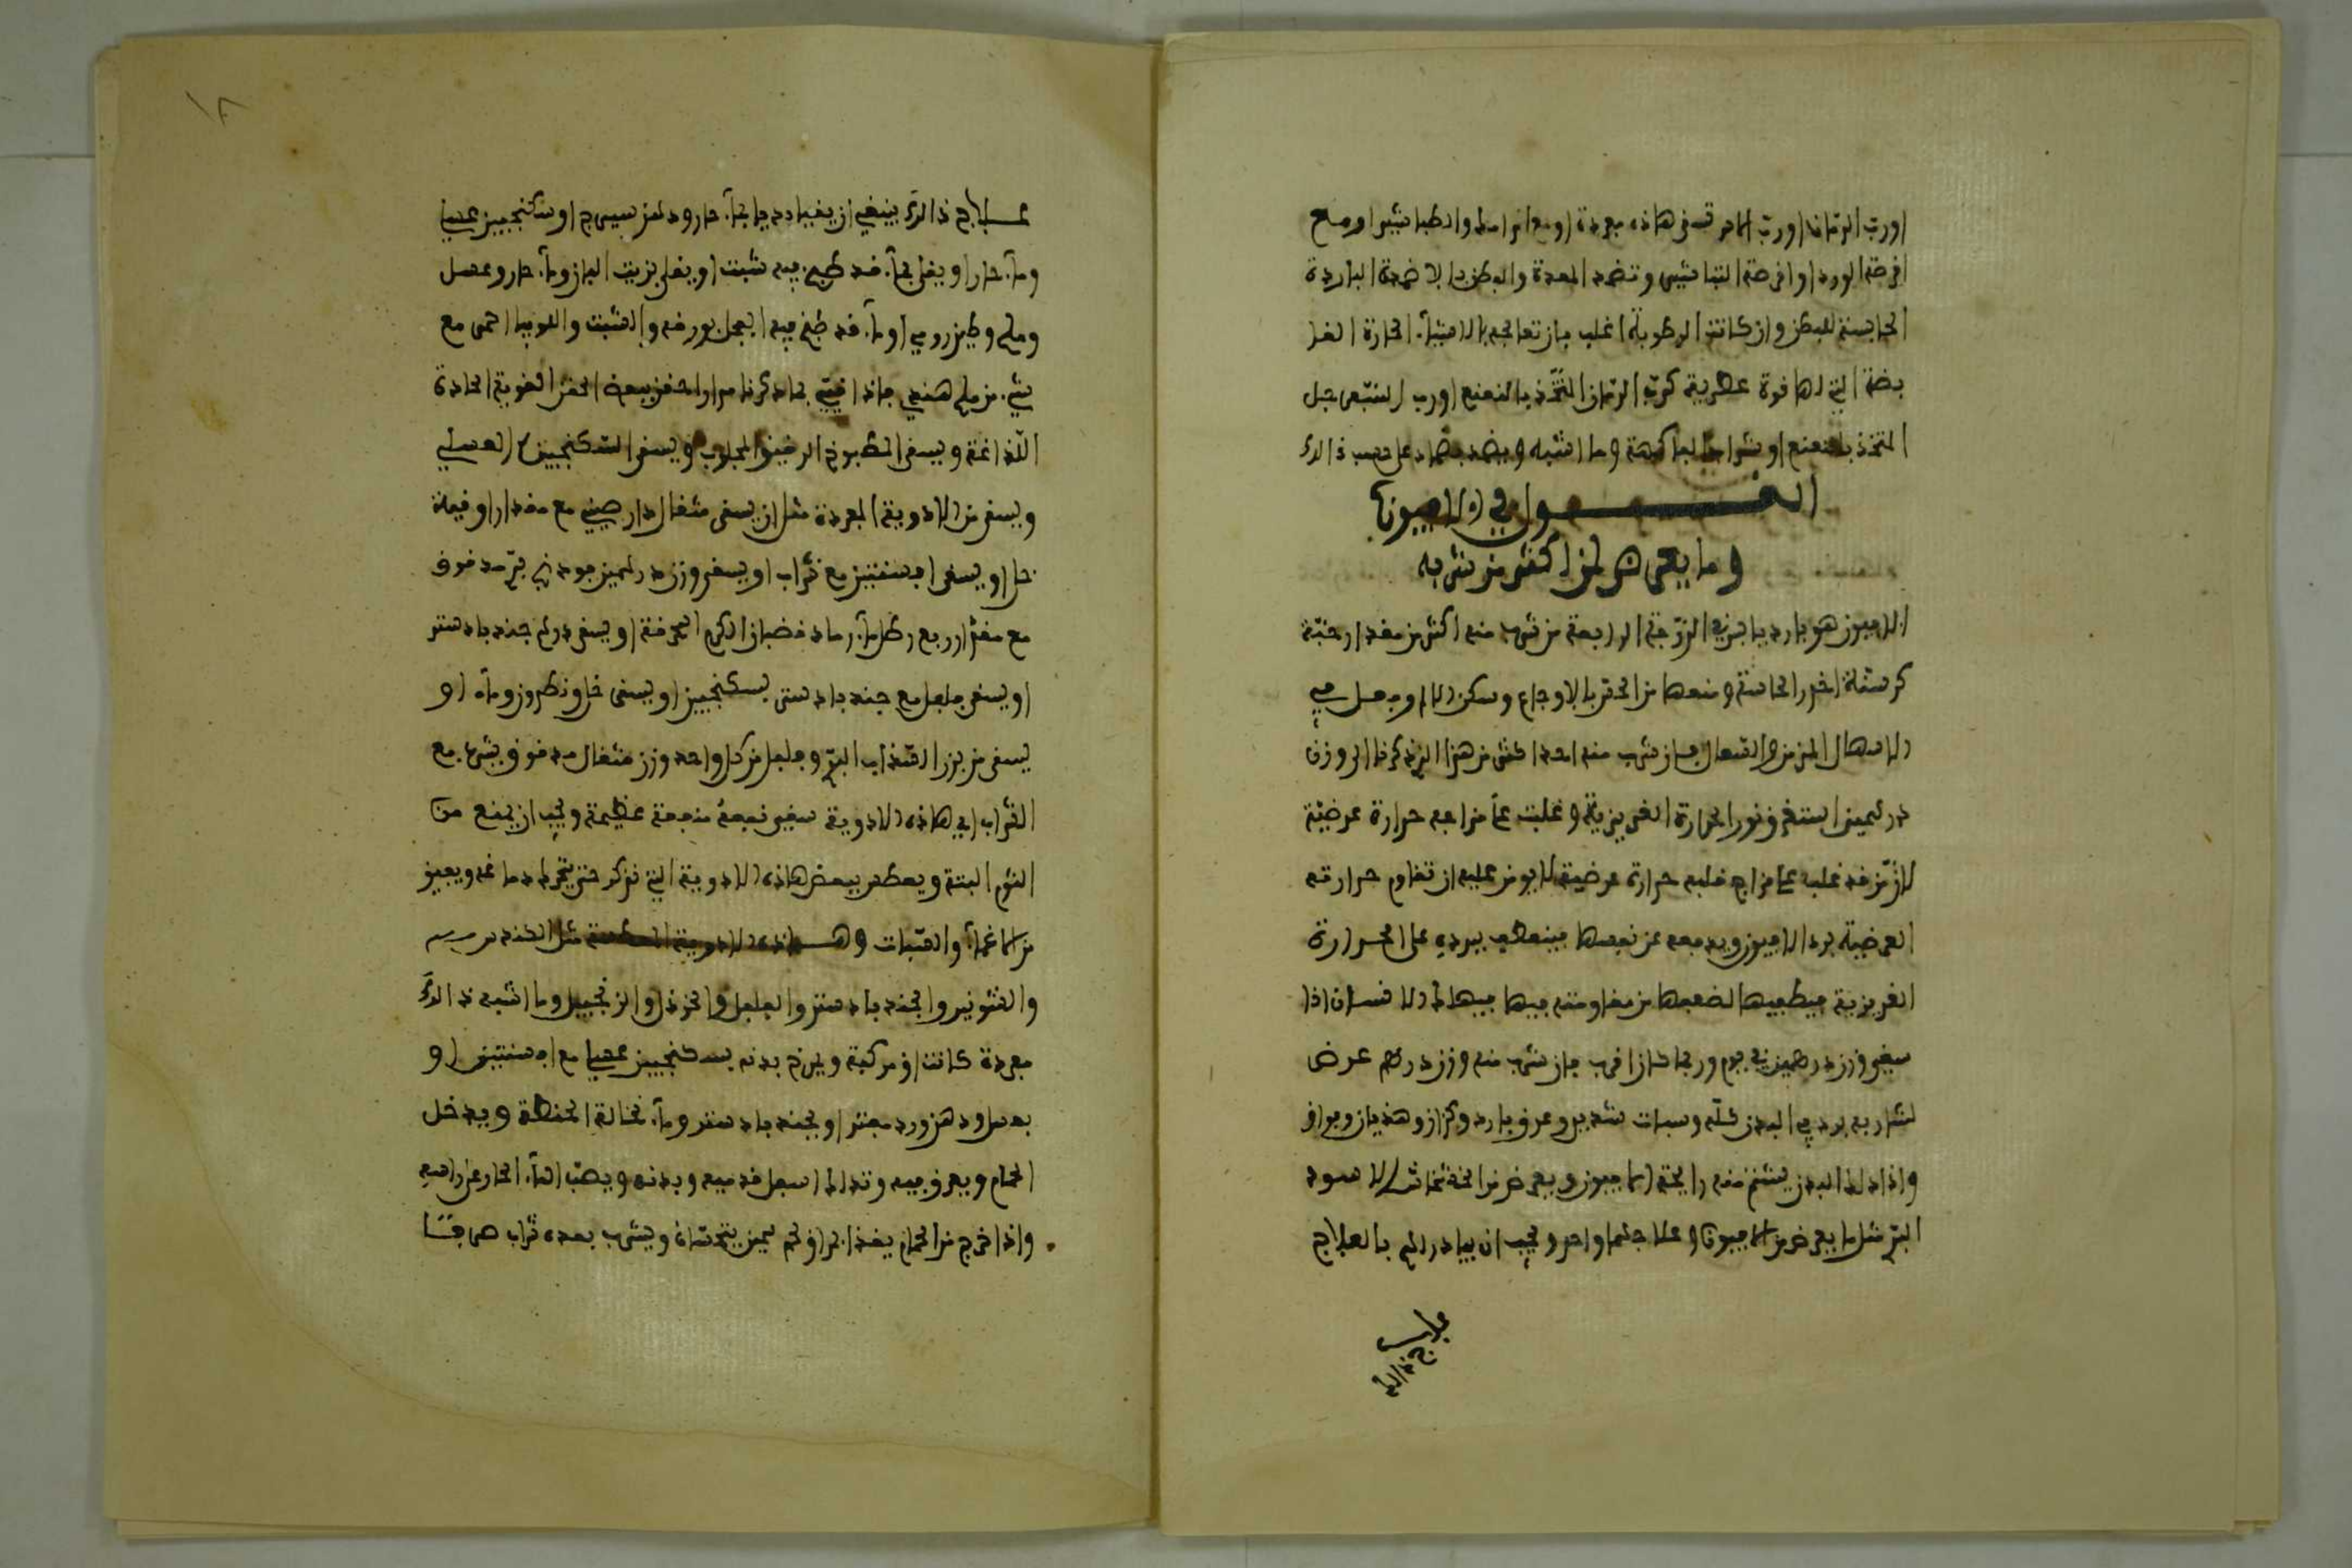 اورب الرمان اورب الاس تسقى هاذه مفردة او مع الرامك والطباشير او مع
اقرصة الورد او اقرصة الطباشير وتضمد المعدة والبطن بالاضمدة الباردة
الحابسة للبطن وان كانت الرطوبة اغلب فان تعالجه بالاشيآء الحارة القا
بضة التي لها قوة عطرية كرب الرمان المتخذ بالنعنع او رب السفرجل
المتخذ بالنعنع او شراب الفاكهة وما اشبه ويضمد بضماد على حسب ذالك
القــول في الافيون
وما يعرض لمن اكثر من شربه
الافيون هو بارد يابس في الدرجة الرابعة من شرب منه اكثر من مقدار حبة
كرسنة اخدر الحاسة ومنعها من الحس بالاوجاع وسكن الالم وحبس
الاسهال المزمن والسعال فان شرب منه احد اكثر من هذا الذي ذكرنا الى وزن
درهمين استفرغ نور الحرارة الغريزية وغلبت على مزاجه حرارة عرضية
لان من قد غلب على مزاج قلبه حرارة عرضية لا يومن عليه ان تقاوم حرارته
العرضية برد الافيون ويدفعه عن نفسها فينعطف ببرده على الحرارة
الغريزية فيطفيها لضعفها من مقاومته فيها فيهلك الانسان اذا
سقي وزن درهمين في يوم وربما كان اقرب فان شرب منه وزن درهم عرض
لشاربه برد في البدن كله وسبات شديد وعرق بارد وكزاز وهذيان وفواق
واذا دلك البدن يشتم منه رايحة الافيون ويعرض من الخشخاش الاسود
البري مثل ما يعرض من الافيون وعلاجهما واحد ويجب ان يبادر اليه بالعلاج
علاج ذالك
١٨
عــلاج ذالك ينبغي ان يتقيا بديا بمآء حار ودهن سيسج او سكنجبين عسلي
ومآء حار او يقيا بمآء قد طبخ فيه شبت او يقيا بزيت البان ومآء حار وعسل
وملح وطين رومي او مآء قد طبخ فيه الفجل بورقه والشبت واللوبيا احمر مع
شيء من ملح هندي فاذا قيئ بما ذكرنا مرارا حقن ببعض الحقن القوية الحادة
اللذاعة ويسقى المطبوخ الرقيق المجلوب ويسقى السكنجبين العسلي
ويسقى من الادوية المفردة مثل ان يسقى مثقال دار صيني مع مقدار اوقية
خل او يسقى افسنتين مع شراب او يسقى وزن درهمين فودنج بري مدقوق
مع مقدار ربع رطل مآء رماد قضبان الكرم المحرقة او يسقى درهم جندبادستر
او يسقى فلفل مع جندبادستر بسكنجبين او يسقى خل ونطرون ومآء او
يسقى من بزر السذاب البري وفلفل من كل واحد وزن مثقال مدقوق بشراب مع
الشراب اي هاذه الادوية سقي نفعه منفعة عظيمة ويجب ان يمنع من
النوم البتة ويعطس ببعض هاذه الادوية التي نذكر حتى يتحرك دماغه ويفيق
من الاغمآء والسبات وهــاذه الادوية المعطسة مثل الكندس
والشونيز والجندبادستر والفلفل والخردل والزنجبيل وما اشبه ذالك
مفردة كانت او مركبة ويمرخ بدنه بسكنجبين عسلي مع افسنتين او
بعسل ودهن ورد مفتر او بجندبادستر ومآء نخالة الحنطة ويدخل
الحمام ويعرق فيه وتدلك اسفل قدميه وبدنه ويصب المآء الحار على راسه
واذا خرج من الحمام يغذا بمراق لحم سمين يتحساه ويشرب بعده شراب صرفا